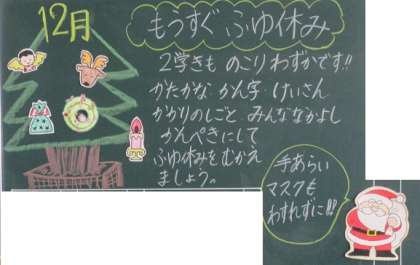 12月
もうすぐ ふゆ休み
2学きも のこり わずかです!!
かたかな かん字 けいさん
かかりのしごと みんななかよし
かんぺきにして
ふゆ休みをむかえ
ましょう。
手あらい
マスクも
わすれずに!!